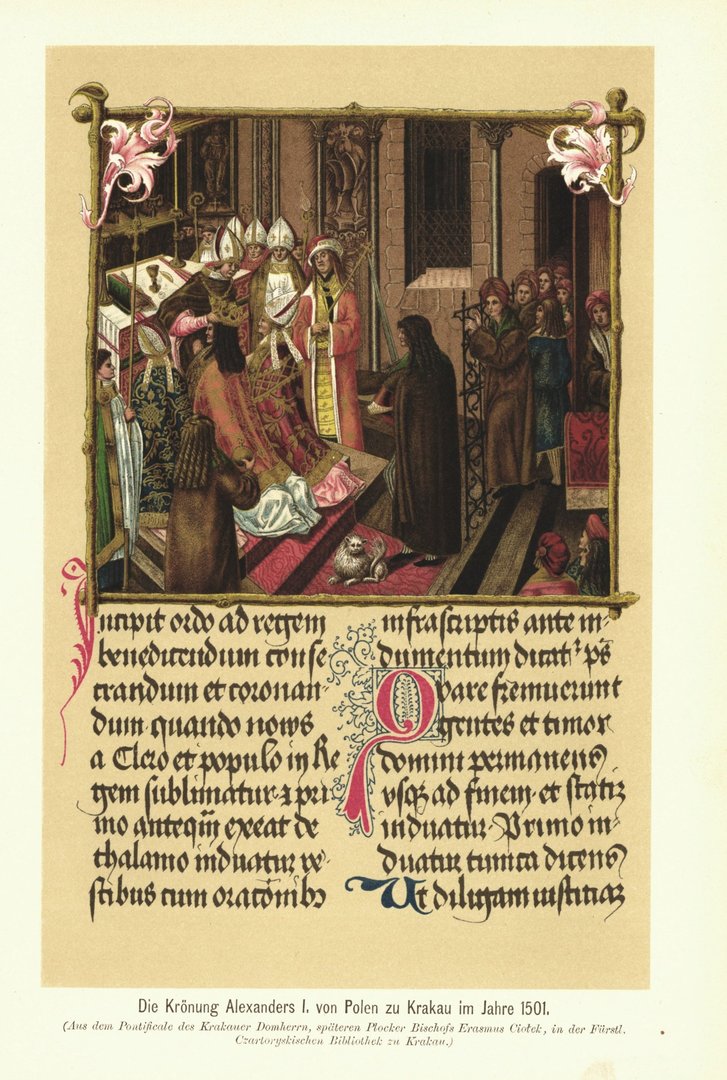 Incipit ordo ad regem
benedicendum conse
crandum et coronan-
dum quando nows
a Clero et populo in Re
gem sublimatur. ⁊ pri
mo anteqm̄ exeat de
thalamo induatur ve-
stibus cum oracōnibꝫ
infrascriptis ante in-
dumentum dicat᷑ ps̄
Quare fremuerunt
gentes et timor
domini permanens
vsqꝫ ad finem. et statiꝫ
induatur. Primo in-
duatur tunica dicens
Ut diligam iusticiaꝫ
Die Krönung Alexanders I. von Polen zu Krakau im Jahre 1501.
(Aus dem Pontificale des Krakauer Domherrn, späteren Plocker Bischofs Erasmus Ciołek, in der Fürstl.
Czartoryskischen Bibliothek zu Krakau.)